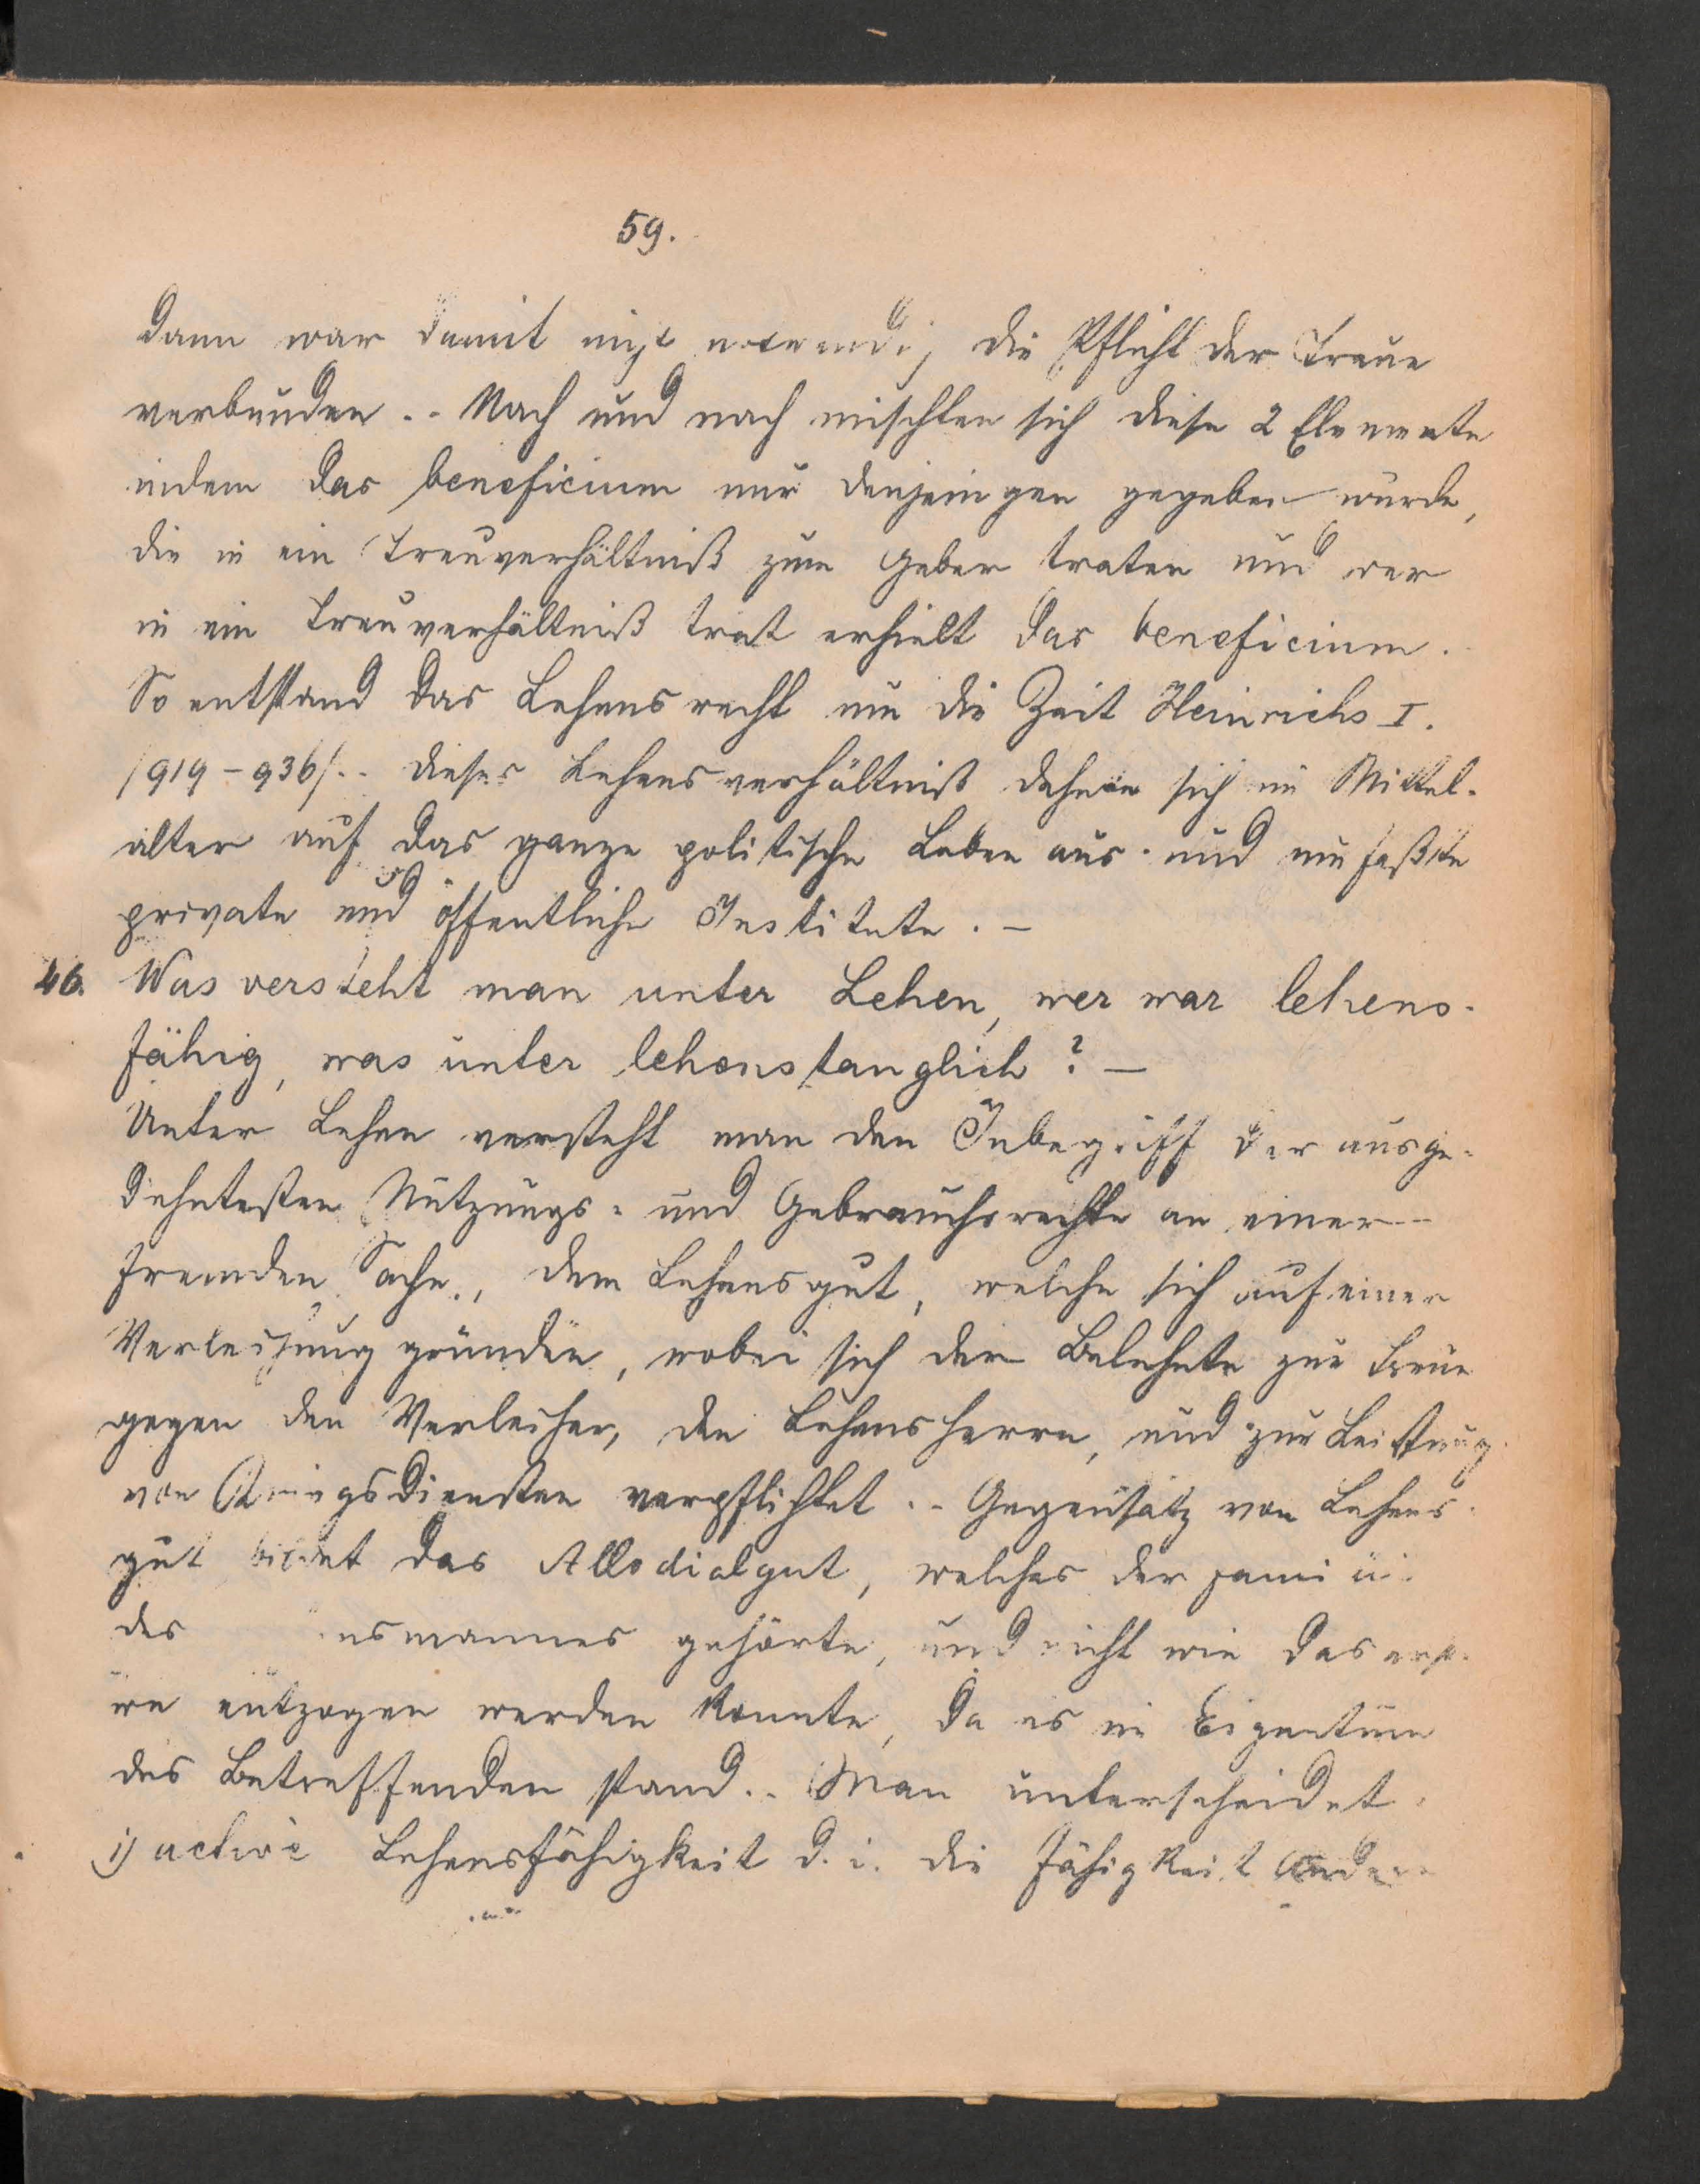 59.
dann war damit nicht notwendig die Pflicht der Treue
verbunden. - Nach und nach mischten sich diese 2 Elemente
indem das beneficium nur denjenigen gegeben wurde,
die in ein Treuverhältniß zum Geber traten und wer
in ein Treuverhältniß trat erhielt das beneficium.
So entstand das Lehensrecht um die Zeit Heinrichs I.
/919-936/. - Dieses Lehensverhältniß dehnte sich im Mittel-
alter auf das ganze politische Leben aus und umfaßte
private und öffentliche Institute. -
46. Was versteht man unter Lehen, wer war lehens-
fähig, was unter lehenstauglich? -
Unter Lehen versteht man den Inbegriff der ausge-
dehntesten Nutzungs- und Gebrauchsrechte an einer
fremden Sache, dem Lehensgut, welche sich auf einer
Verleihung gründen, wobei sich der Belehnte zur Treue
gegen den Verleiher, den Lehensherrn, und zur Leistung
von Kriegsdiensten verpflichtet. - Gegensatz von Lehens-
gut bildet das Allodialgut, welches der
des gehörte, und nicht wie das
entzogen werden konnte, da es im Eigentum
des Betreffenden stand. - Man unterscheidet
1) active Lehensfähigkeit d. i. die Fähigkeit